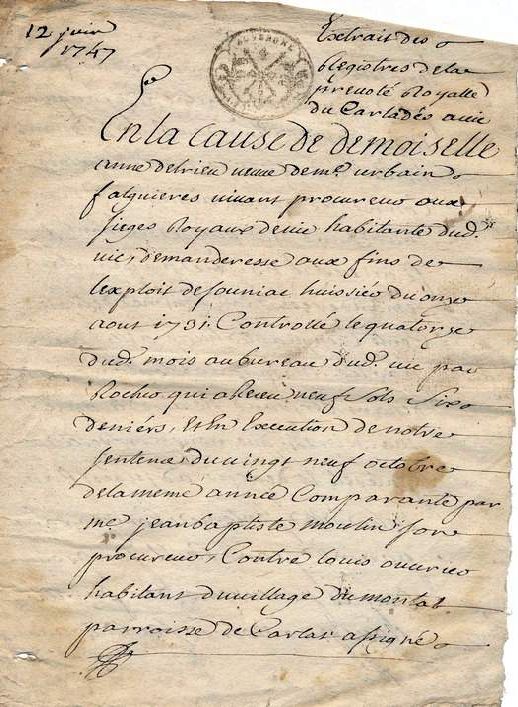 12 juin
1747
AUVERGNE
Extrait des
Registres de la
prevoté Royalle
du Carladés a vic
En la cause de demoiselle
anne delrieu veuve de me. urbain
falguieres vivant procureur aux
sieges Royaux de vic habitante dud.
vic, demanderesse aux fins de
lexploit de souniac huissier du onze
aout 1731. Controllé le quatorze
dud. mois au bureau dud. vic par
Rocho qui a Receu neuf sols Six
deniérs, et En Execution de notre
sentence du vingt neuf octobre
de la meme année Comparante par
me jean baptiste moulin son
procureur, Contre louis
habitant du village du montat
parroisse de Carlat assigné